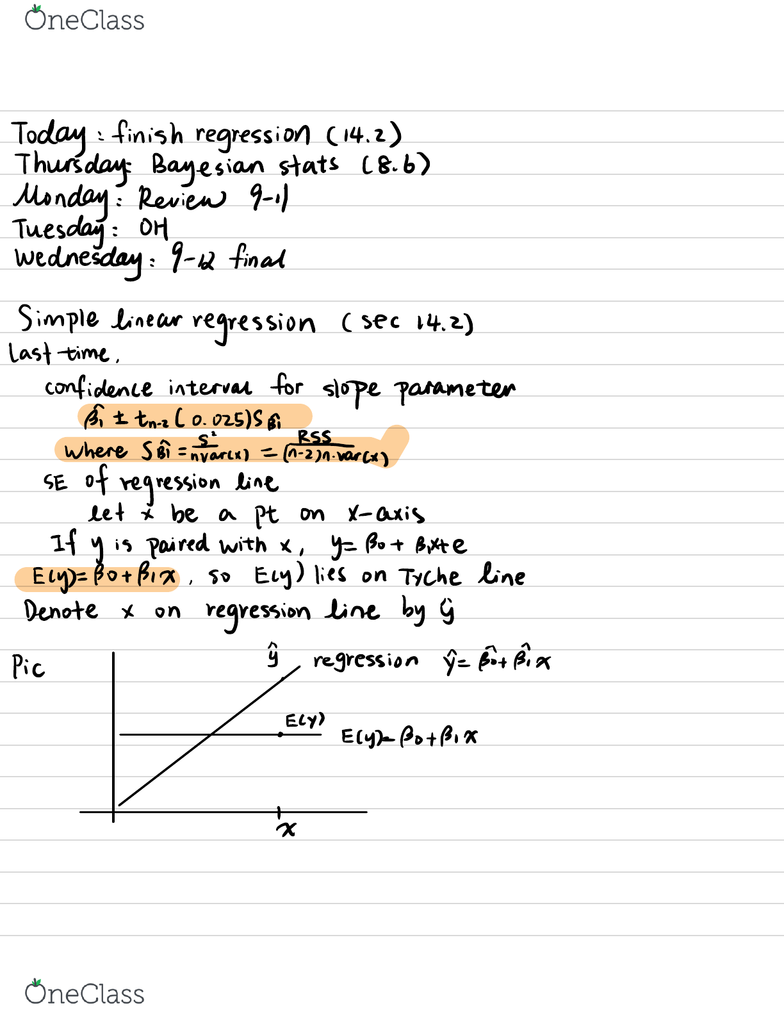 OneClass
Today : finish regression (14.2)
Thursday: Bayesian stats (8.6)
Monday : Review 9-11
Tuesday : OH
Wednesday : 9-12 final
Simple linear regression (sec 14.2)
Last time,
confidence interval for slope parameter
β̂₁ ± tₙ₋₂(0.025)S β̂₁
where S β̂₁ = S²/nvar(x) = RSS/(n-2)n·var(x)
SE of regression line
let x be a pt on x-axis
If y is paired with x, y= β₀ + β₁x+e
E(y)= β₀ + β₁x, so E(y) lies on Tyche line
Denote x on regression line by ŷ
Pic ŷ regression ŷ= β̂₀+ β̂₁x
E(y)
E(y)= β₀+β₁x
x
OneClass